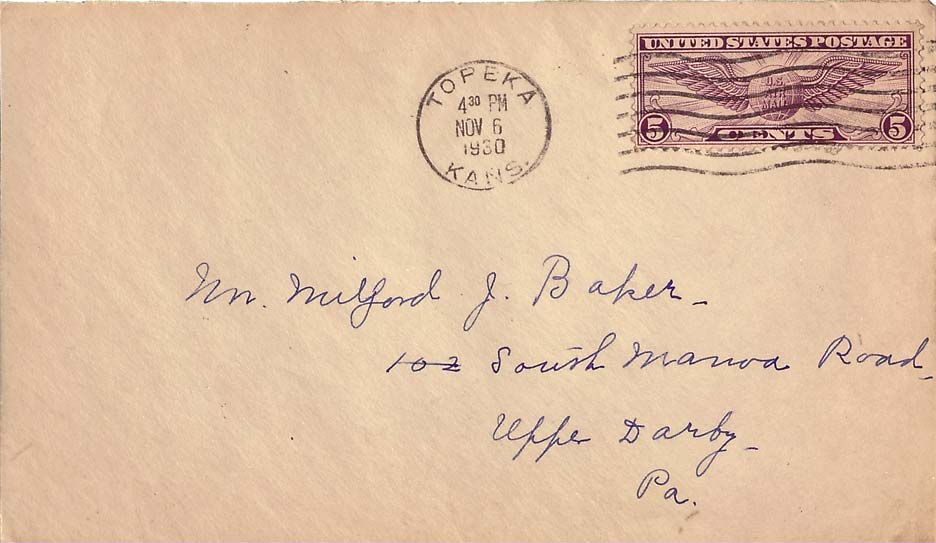 UNITED STATES POSTAGE
U.S.
AIR
MAIL
5 CENTS 5
TOPEKA
4 30 PM
NOV 6
1930
KANS.
Mr. Milford J. Baker
102 South Manoa Road
Upper Darby
Pa.